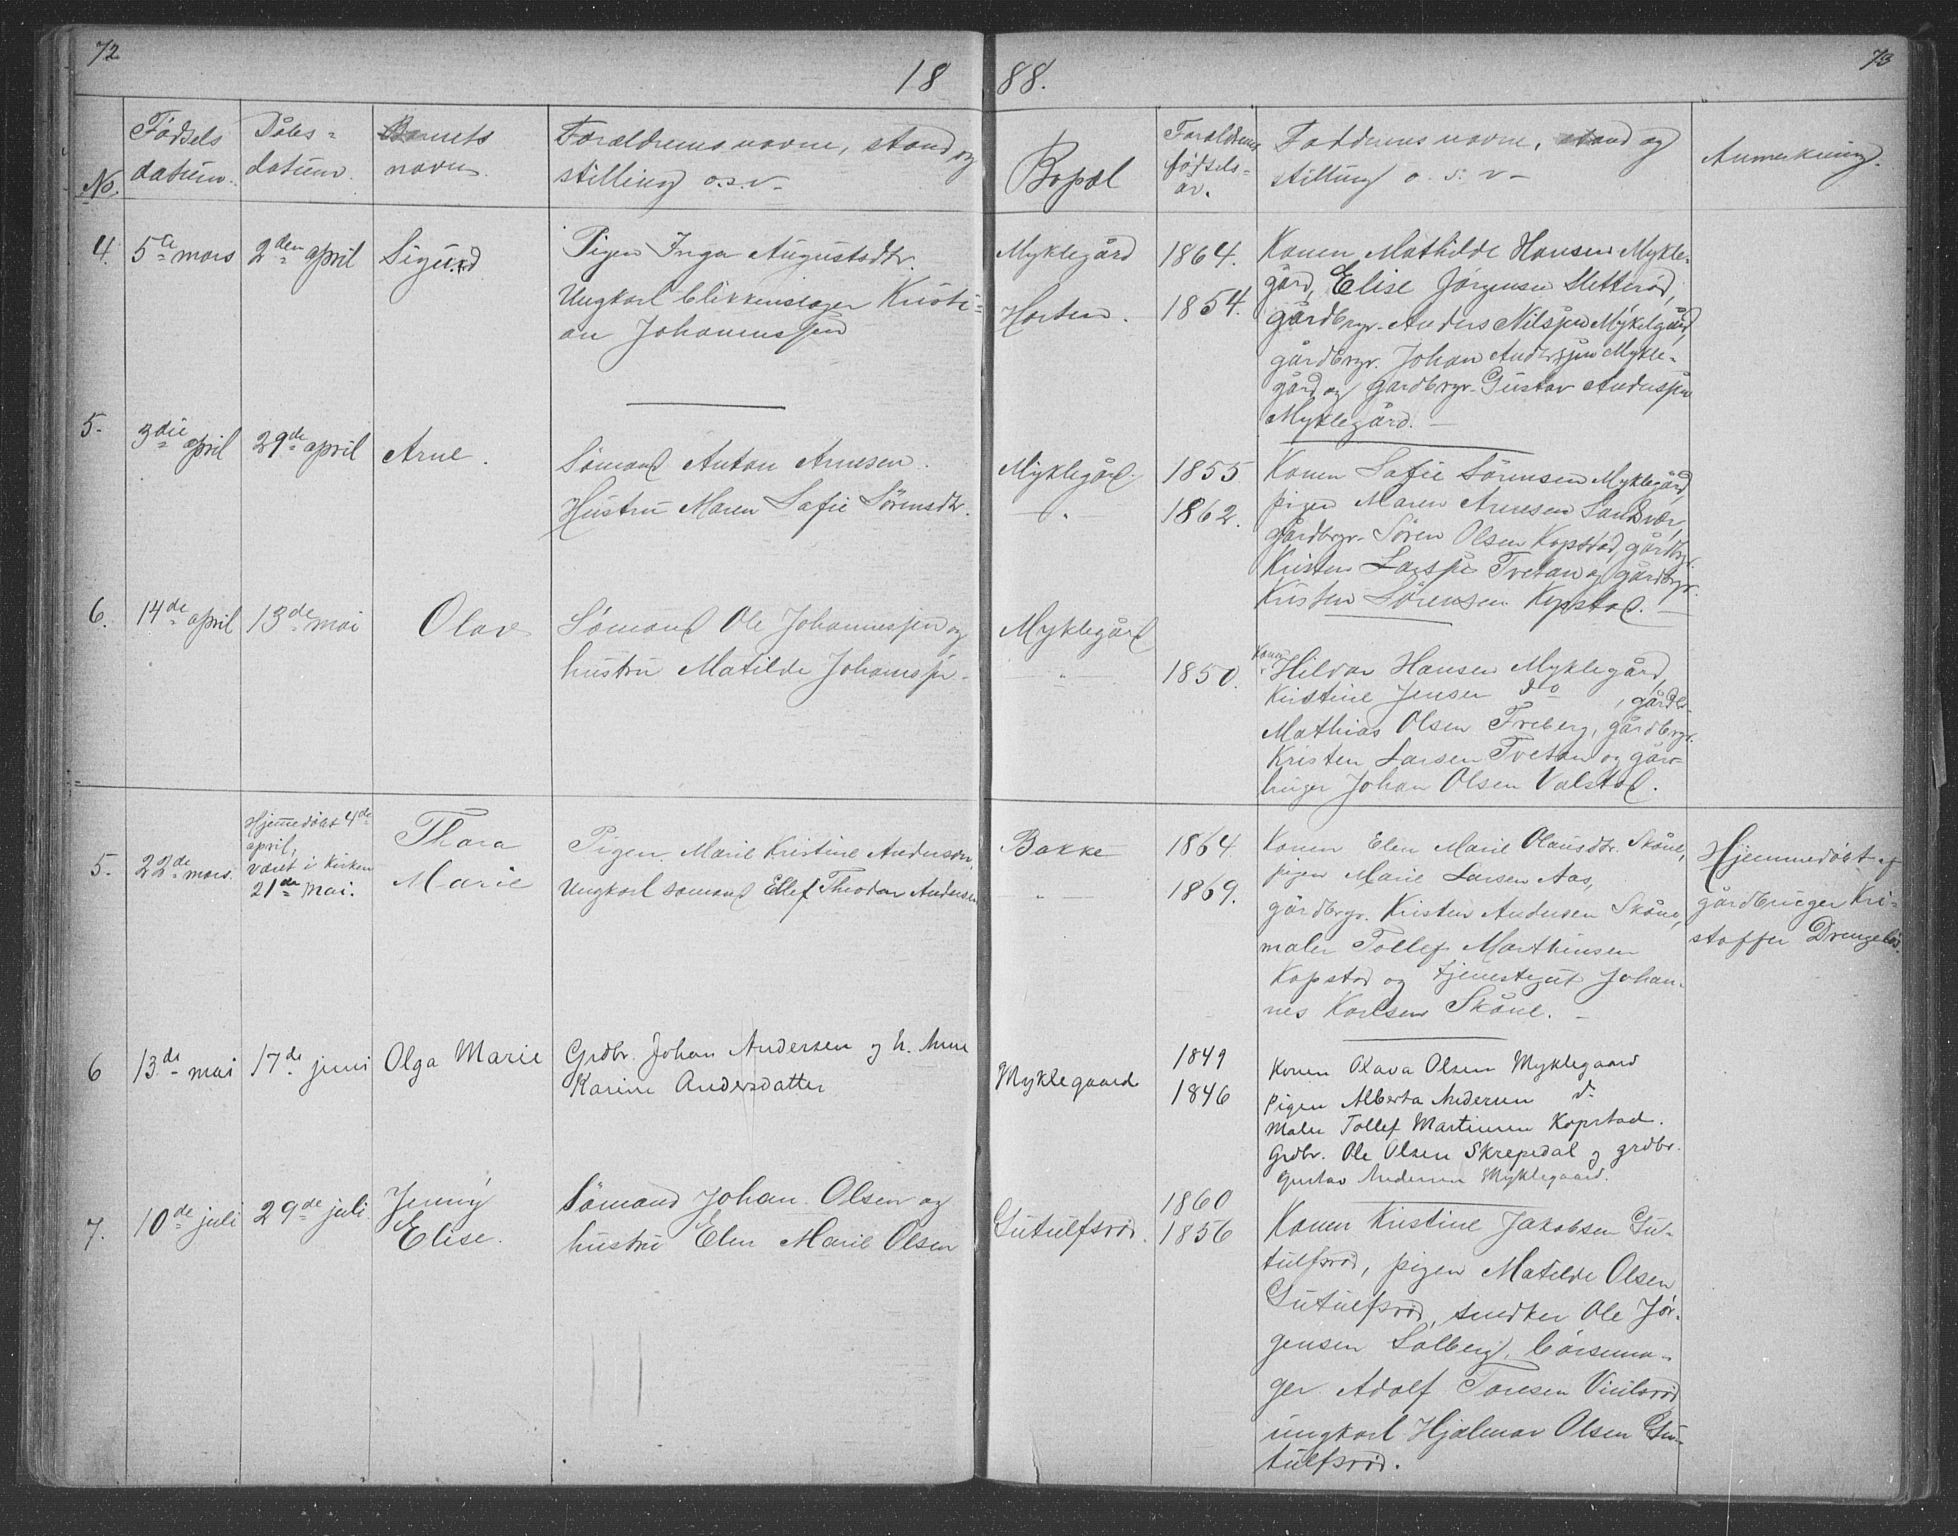 72
18
88.
73
No.
Fødsels
datum.
Dåbs-
datum.
Barnets
navn.
Forældrenes navne, stand og
stilling o.s.v.
Bopæl
Forældrenes
fødsels-
år.
Faddernes navne, stand og
stilling o. s. v-
Anmerkning.
4.
5te mars
2den april
Sigurd
Pigen Inga Augustsdtr.
Ungkarl blikkenslager Kristi-
an Johannessen
Myklegård
Horten.
1864.
1854.
Konen Mathilde Hansen Mykle-
gård, Elise Jørgensen Sletterød,
gårdbrgr. Anders Nilssen Myklegård,
gårdbrgr. Johan Anderssen Mykle-
gård og gårdbrgr. Gustav Anderssen
Myklegård. -
5.
3die april
29de april
Arne.
Sømand Anton Arnesen.
Hustru Maren Sofie Sørensdtr.
Myklegård.
- " -
1855
1862.
Konen Sofie Sørensen Myklegård
pigen Maren Arnesen Sandvær,
gårdbrgr. Søren Olsen Kopstad, gårdbrgr.
Kristen Larssen Tvetan og gårdbrgr.
Kristen Sørensen Kopstad. -
6.
14de april
13de mai
Olav
Sømand Ole Johannessen og
hustru Matilde Johanssen.
Myklegård
- " -
1850.
Konen
Hilda Hansen Myklegård,
Kristine Jensen do, gårdb-
Mathias Olsen Freberg, gårdbrgr.
Kristen Larsen Tvetan og gård-
bruger Johan Olsen Valstad.
5.
22de mars.
Hjemmedøbt 4de
april,
været i kirken
21de mai.
Thora
Marie
Pigen Marie Kristine Andersen,
Ungkarl sømand Ellef Theodor Andersen
Bakke
- " -
1864.
1869.
Konen Elen Marie Olausdtr. Skåne,
pigen Marie Larsen Aas,
gårdbrgr. Kristen Andersen Skåne,
maler Tollef Marthinsen
Kopstad og tjenestegut Johan-
nes Karlsen Skåne. -
Hjemmedøbt af
gårdbruger Kri-
stoffer
6
13de mai
17de juni
Olga Marie
Grdbr. Johan Andersen og h. Anne
Karine Andersdatter
Myklegaard
1849
1846
Konen Olava Olsen Myklegaard
pigen Alberta Andersen do
Maler Tollef Martinsen Kopstad.
Grdbr. Ole Olsen Skrepedal og grdbr.
Gustav Andersen Myklegaard.
7.
10de juli
29de juli
Jenny
Elise.
Sømand Johan Olsen og
hustru Elen Marie Olsen
Gutulfsrød.
1860
1856
Konen Kristine Jakobsen Gu-
tulfsrød, pigen Matilde Olsen
Gutulfsrød, snedker Ole Jør-
gensen Solberg, børsema-
ger Adolf Toresen
ungkarl Hjalmar Olsen Gu-
tulfsrød.